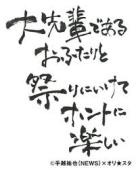 大先輩である
おふたりと
祭りにいけて
ホントに
楽しい
©手越祐也(NEWS)×オリ★スタ